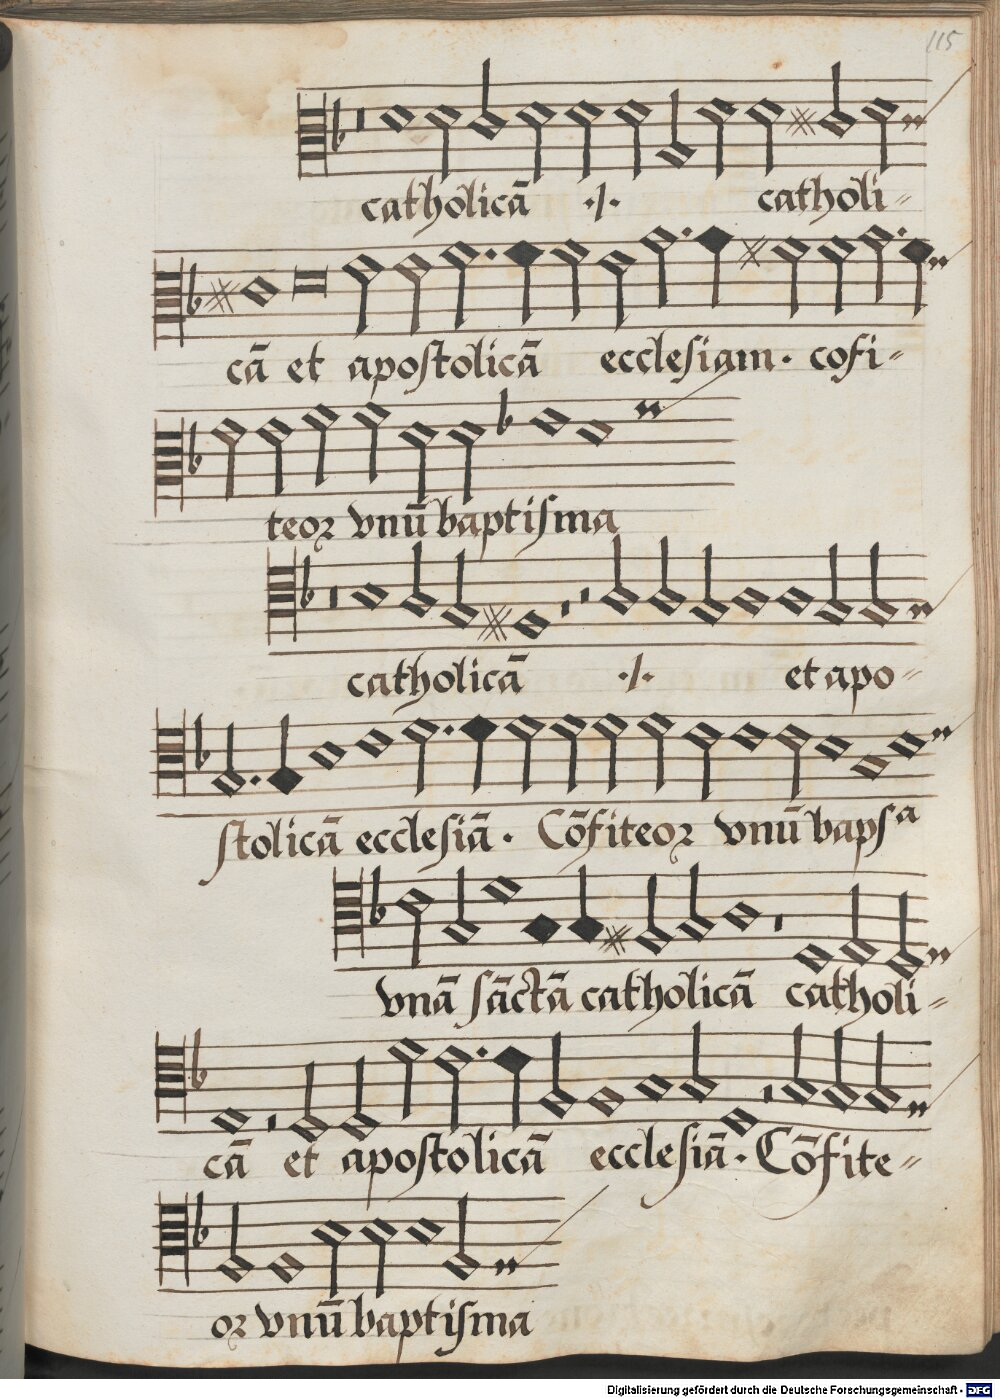 115
catholicā ·/· catholi〃
cā et apoſtolicā ecclesiam· cofi〃
teoꝛ vnū baptiſma
catholicā ·/· et apo〃
ſtolicā eccleſiā· Cōfiteoꝛ vnū bapſᵃ
vnā ſāctā catholicā catholi〃
cā et apoſtolicā eccleſiā· Cōfite〃
oꝛ vnū baptiſma
Digitalisierung gefördert durch die Deutsche Forschungsgemeinschaft - DFG